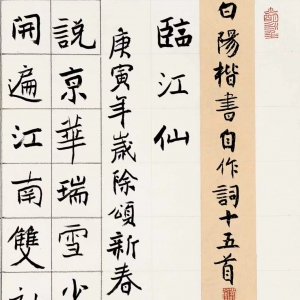 白陽楷書自作詞十五首
臨江仙
庚寅年歲除頌新春
說京華瑞雪少
開遍江南雙